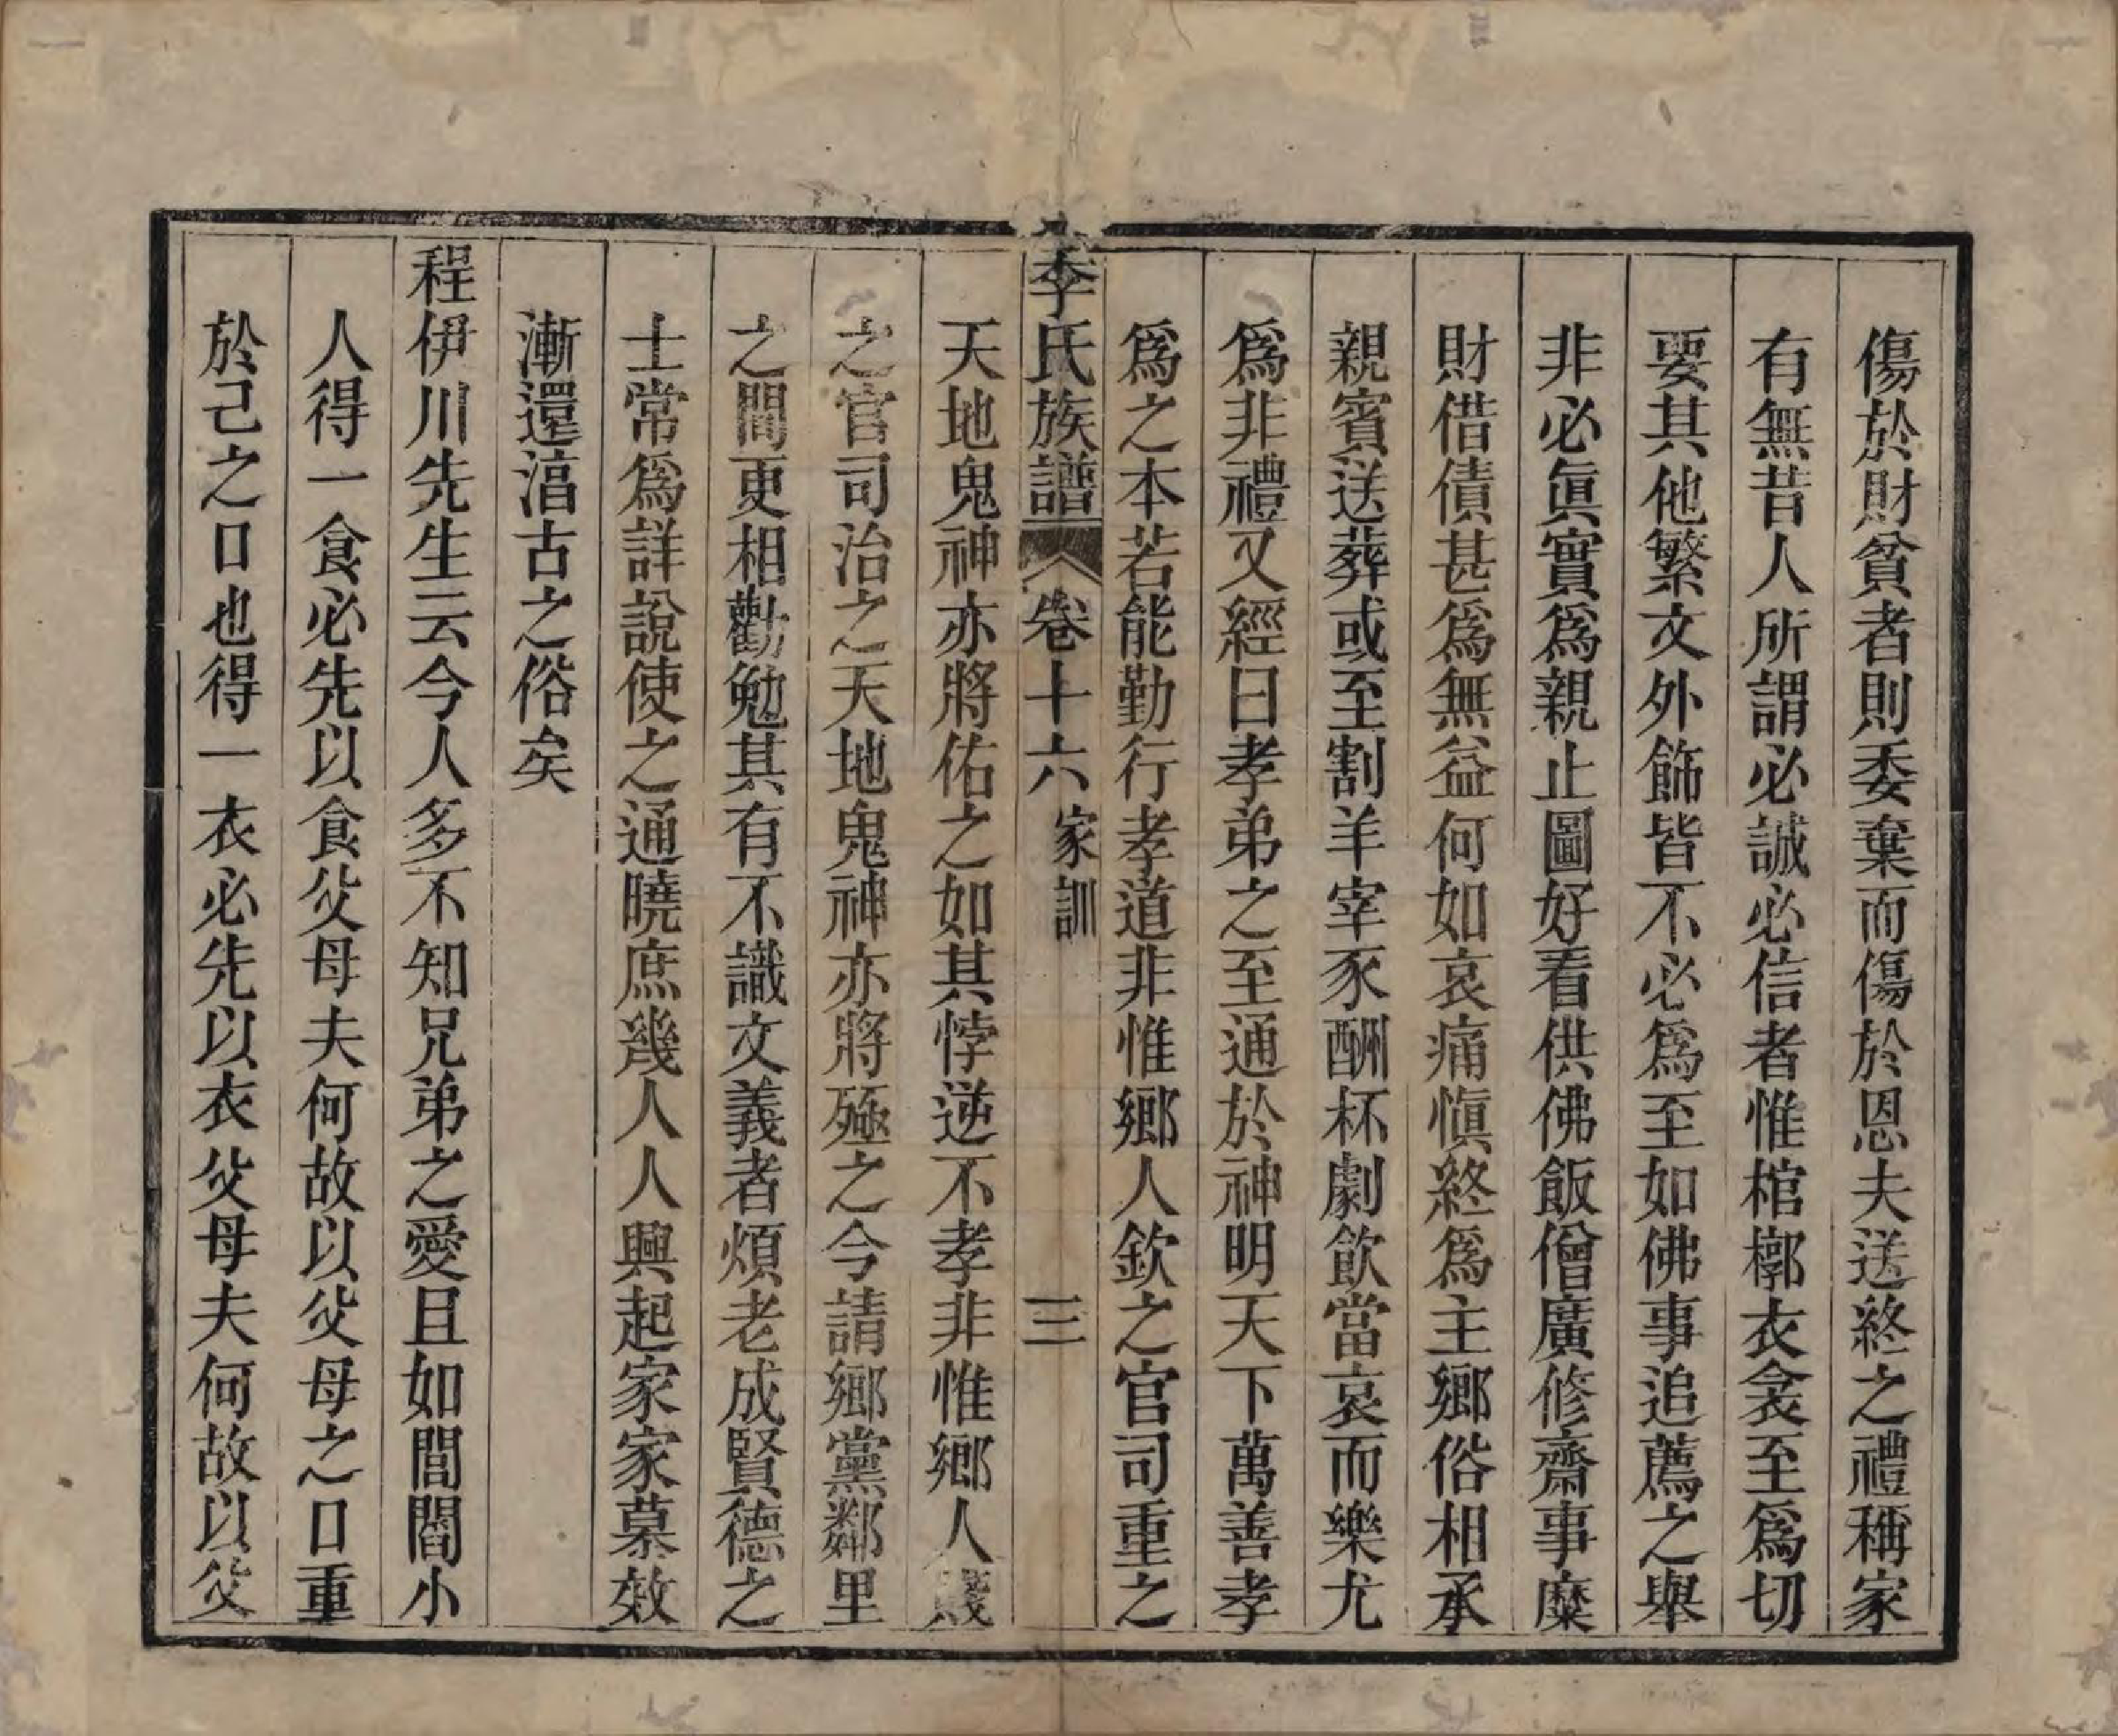 傷於財貧者則委棄而傷於恩夫送終之禮稱家
有無昔人所謂必誠必信者惟棺槨衣衾至爲切
要其他繁文外飾皆不必爲至如佛事追薦之舉
非必眞實爲親止圖好看供佛飯僧廣修齋事糜
財借債甚爲無益何如哀痛愼終爲主鄉俗相承
親賓送葬或至割羊宰豕酬杯劇飲當哀而樂尤
爲非禮又經曰孝弟之至通於神明天下萬善孝
爲之本若能勤行孝道非惟鄉人欽之官司重之
李氏族譜 卷十六 家訓 三
天地鬼神亦將佑之如其悖逆不孝非惟鄉人賤
之官司治之天地鬼神亦將殛之今請鄉黨鄰里
之間更相勸勉其有不識文義者煩老成賢德之
士常爲詳說使之通曉庶幾人人興起家家慕效
漸還湻古之俗矣
程伊川先生云今人多不知兄弟之愛且如閭閻小
人得一食必先以食父母夫何故以父母之口重
於己之口也得一衣必先以衣父母夫何故以父